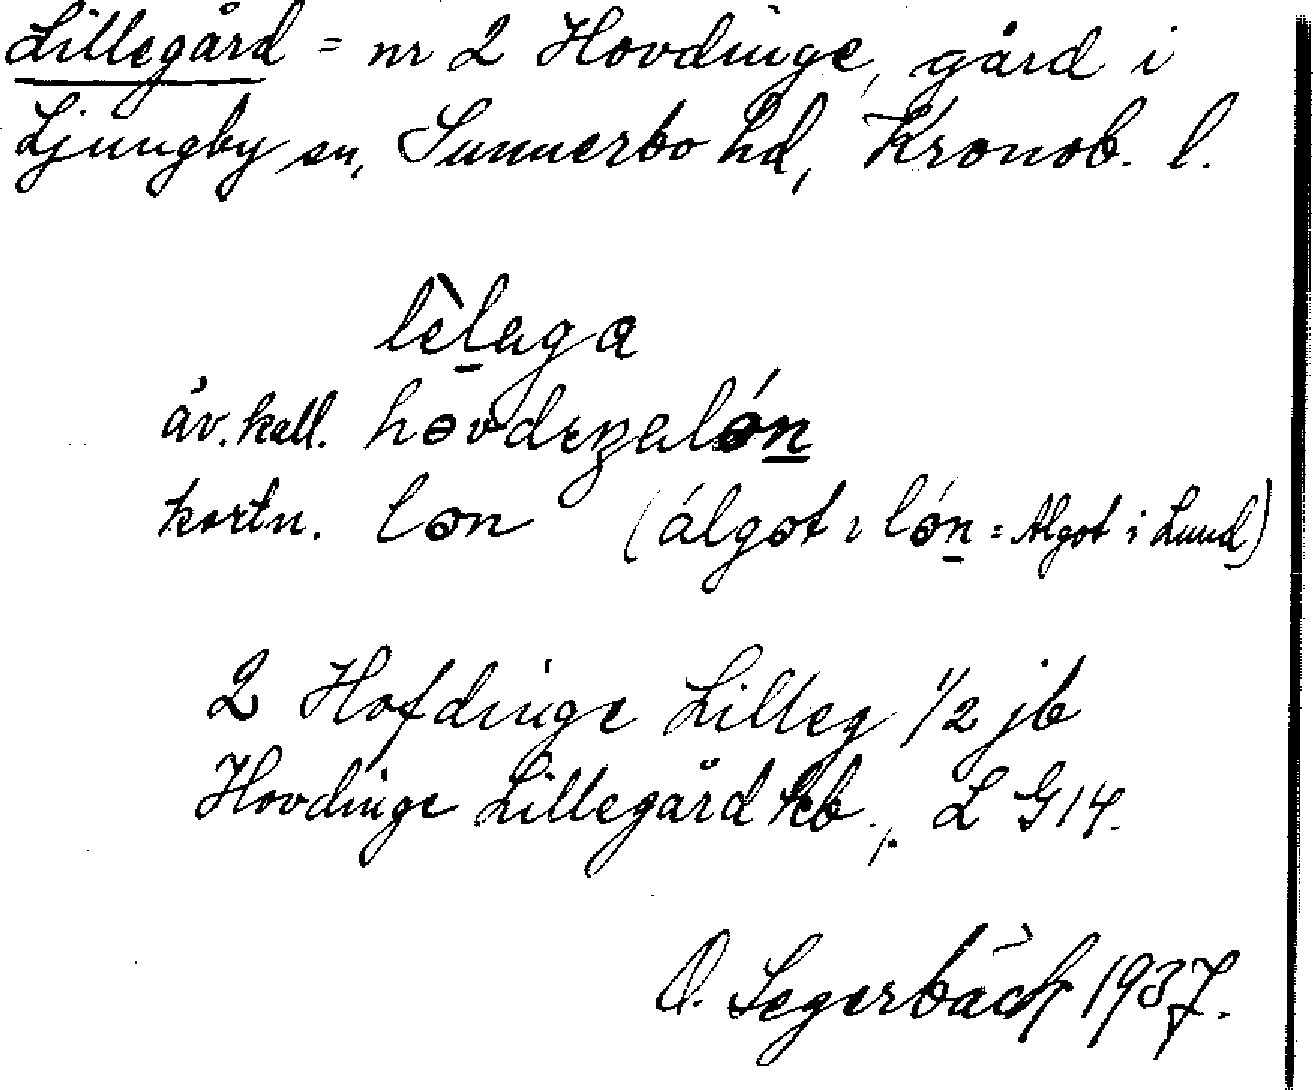 Lillegård = nr 2 Hovdinge, gård i
Ljungby sn, Sunnerbo hd, Kronob. l.
lèlaga
äv. kall. hovdeŋalón
kortn. lon (álgot i lón = Algot i Lund)
2 Hofdinge Lilleg 1/2 jb
Hovdinge Lillegård kb., L G14.
O. Segerbäck 1937.